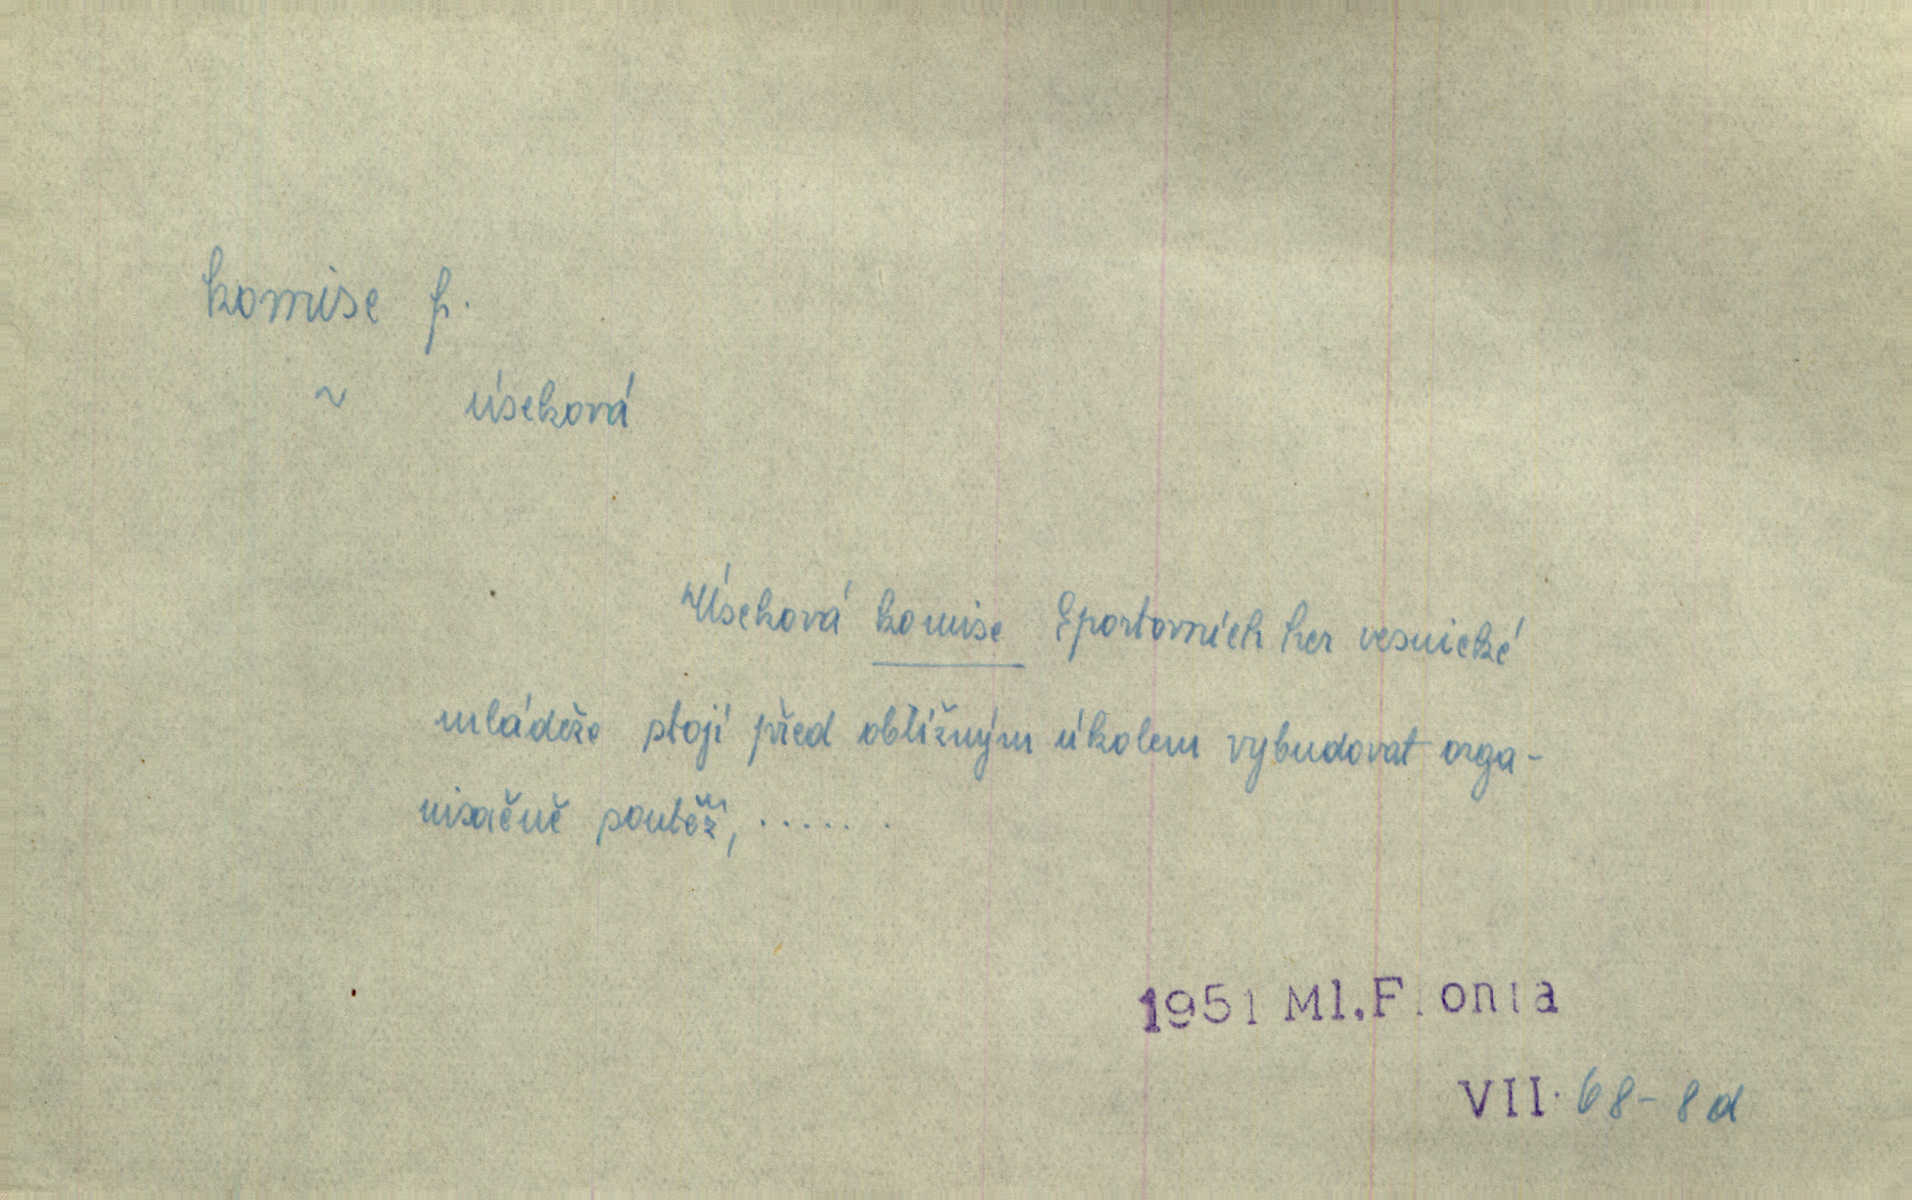 komise f.
~ úseková
Úseková komise Sportovních her vesnické
mládeže stojí před obtížným úkolem vybudovat orga-
nisačně soutěž, ......
1951 Ml.Fronta
VII. 68-8d